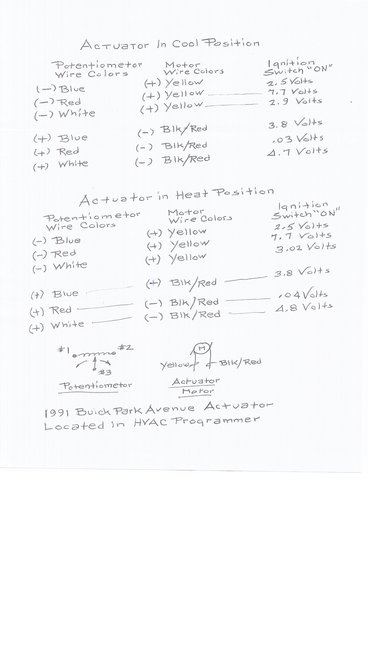 Actuator In Cool Position
Potentiometer Motor Ignition
Wire Colors Wire Colors Switch "ON"
(-) Blue (+) Yellow 2.5 Volts
(-) Red (+) Yellow 7.7 Volts
(-) White (+) Yellow 2.9 Volts
(+) Blue (-) Blk/Red 3.8 Volts
(+) Red (-) Blk/Red .03 Volts
(+) White (-) Blk/Red 4.7 Volts
Actuator in Heat Position
Potentiometer Motor Ignition
Wire Colors Wire Colors Switch "ON"
(-) Blue (+) Yellow 2.5 Volts
(-) Red (+) Yellow 7.7 Volts
(-) White (+) Yellow 3.02 Volts
(+) Blue (-) Blk/Red 3.8 Volts
(+) Red (-) Blk/Red .04 Volts
(+) White (-) Blk/Red 4.8 Volts
#1 #2 M
#3 Yellow Blk/Red
Potentiometer Actuator
Motor
1991 Buick Park Avenue Actuator
Located in HVAC Programmer